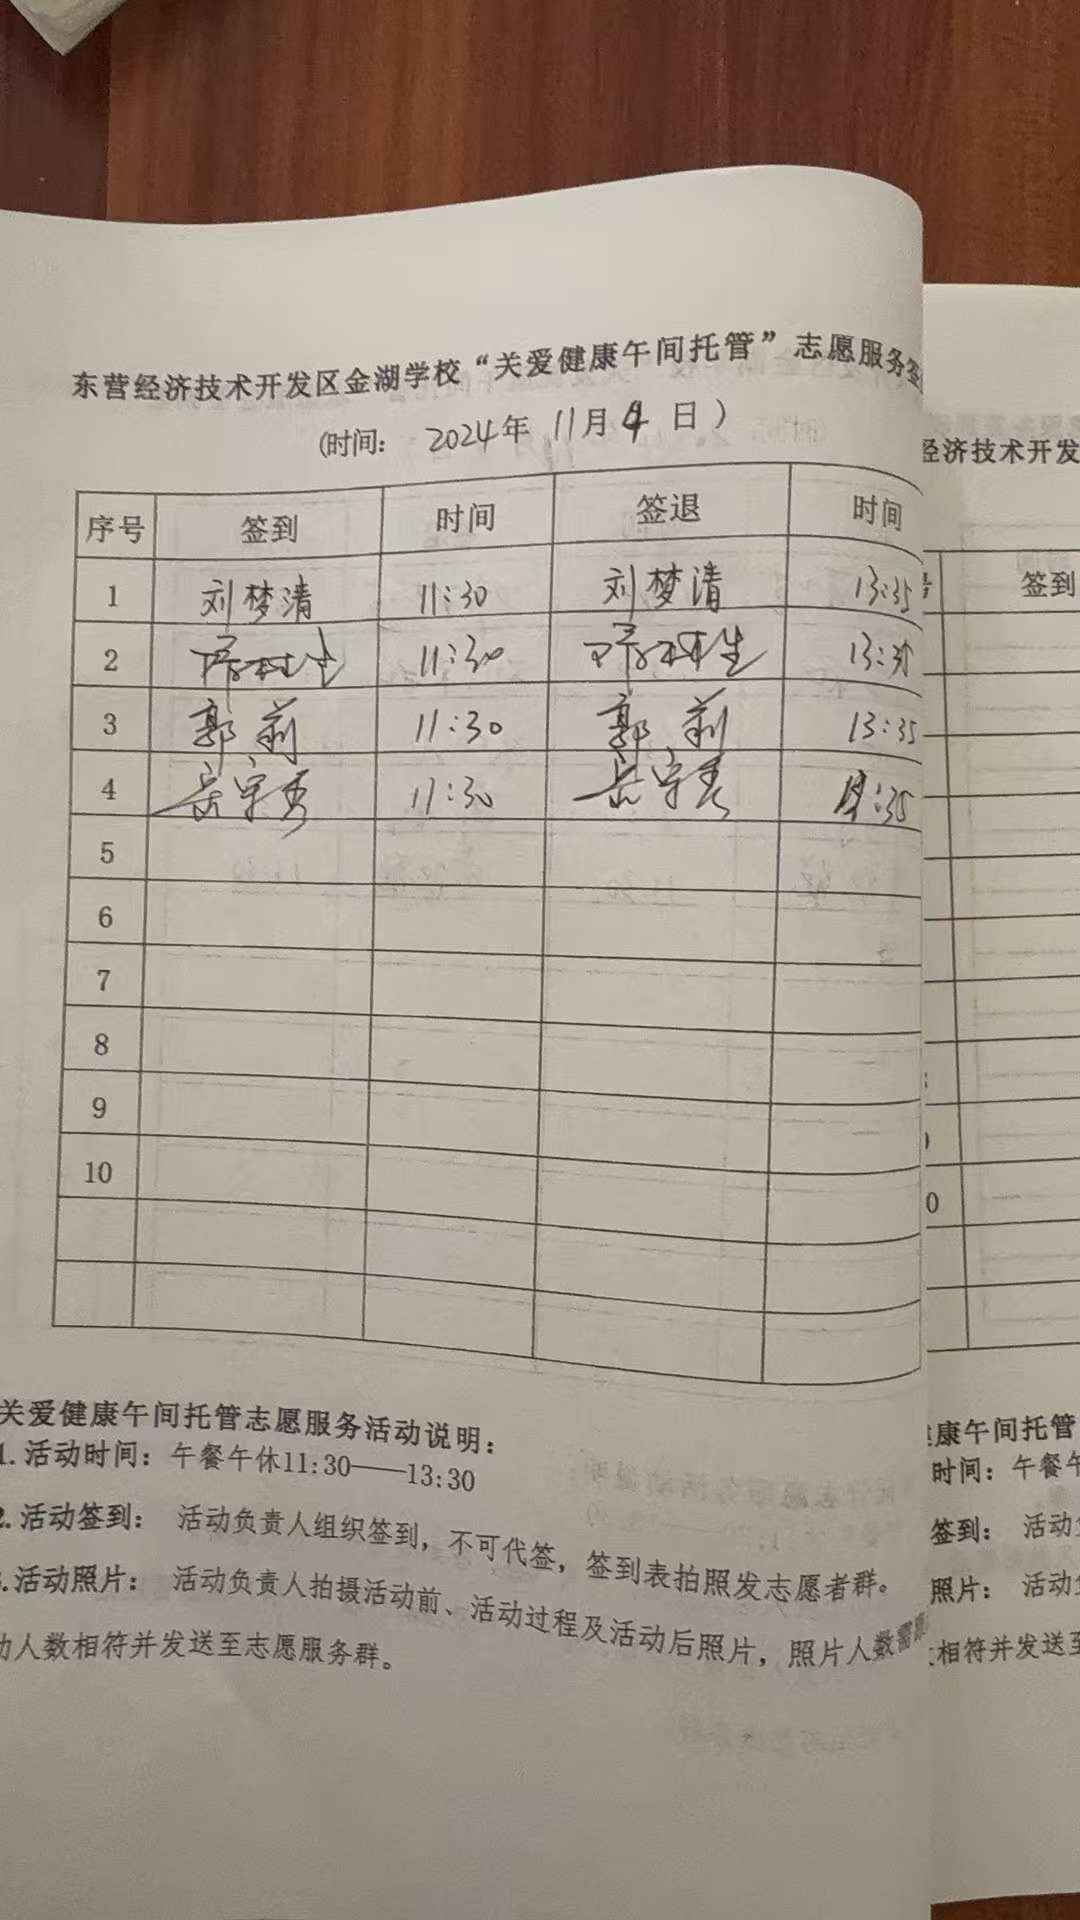 东营经济技术开发区金湖学校“关爱健康午间托管”志愿服务签
(时间: 2024年 11月 4 日)
序号 签到 时间 签退 时间
1 刘梦清 11:30 刘梦清 13:35
2 11:30 13:35
3 郭莉 11:30 郭莉 13:35
4 岳宇秀 11:30 岳宇秀 13:35
5
6
7
8
9
10
关爱健康午间托管志愿服务活动说明:
1.活动时间: 午餐午休11:30——13:30
2.活动签到: 活动负责人组织签到, 不可代签, 签到表拍照发志愿者群。
3.活动照片: 活动负责人拍摄活动前、活动过程及活动后照片, 照片人数需
动人数相符并发送至志愿服务群。
经济技术开发
号 签到
0
健康午间托管
时间: 午餐午
签到: 活动
照片: 活动
相符并发送至